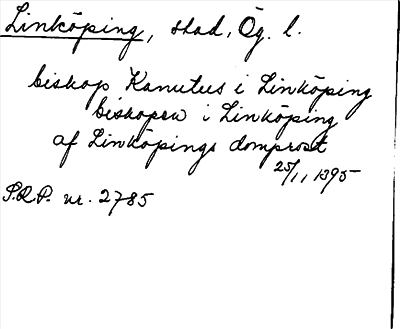 Linköping, stad, Ög. l.
biskop Kanutus i Linköping
biskopen i Linköping
af Linköpings domprost
25/11 1395
S.R.P. nr. 2785